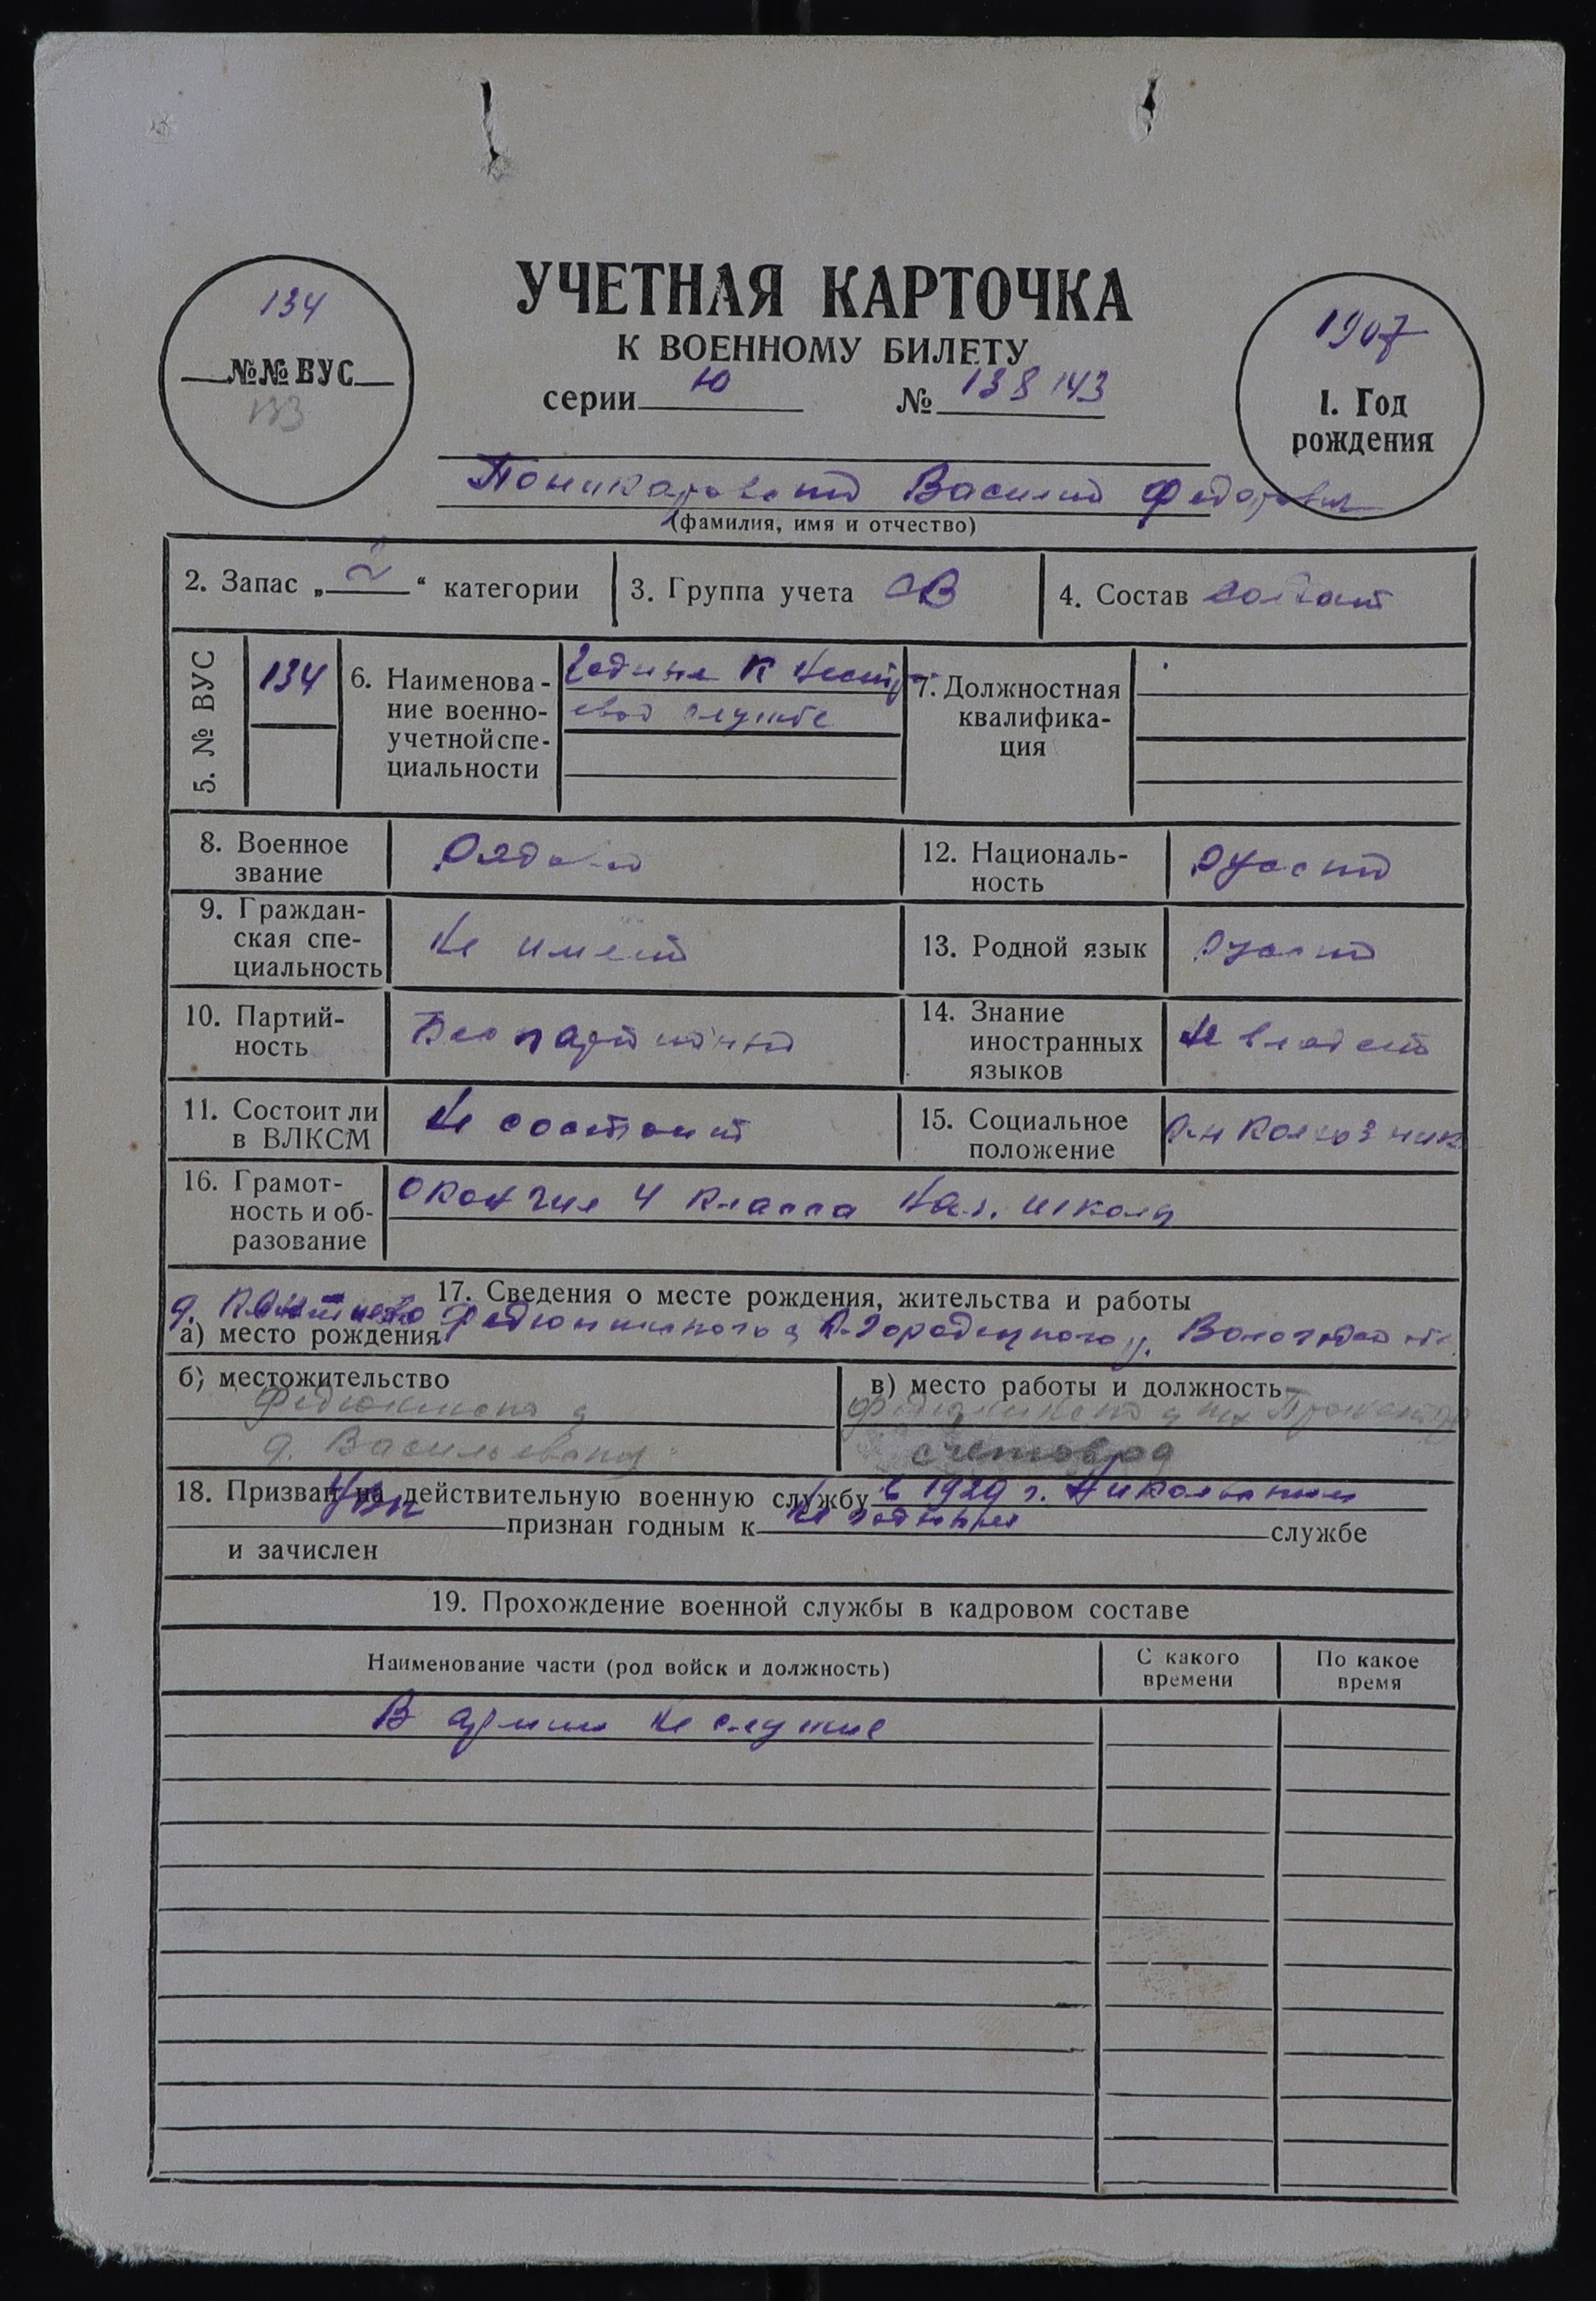 134
№№ ВУС
133
УЧЕТНАЯ КАРТОЧКА
К ВОЕННОМУ БИЛЕТУ
серии Ю № 138143
1907
1. Год
рождения
Поникаровский Василий Федорович
(фамилия, имя и отчество)
2. Запас „ 2 “ категории
3. Группа учета СВ
4. Состав солдат
5. № ВУС
134
6. Наименова-
ние военно-
учетной спе-
циальности
Годные к нестр
евой службе
7. Должностная
квалифика-
ция
8. Военное
звание
Рядовой
12. Националь-
ность
Русский
9. Граждан-
ская спе-
циальность
Не имеет
13. Родной язык
Русский
10. Партий-
ность
Беспартийный
14. Знание
иностранных
языков
Не владеет
11. Состоит ли
в ВЛКСМ
Не состоит
15. Социальное
положение
колхозник
16. Грамот-
ность и об-
разование
Окончил 4 класса нач. школы
17. Сведения о месте рождения, жительства и работы
д.
а) место рождения К-Городецкого р. Вологодской обл.
б) местожительство
в) место работы и должность
д. Васильевка
счетовод
18. Призван на действительную военную службу в 1929 г. Никольским
РВК признан годным к не годным службе
и зачислен
19. Прохождение военной службы в кадровом составе
Наименование части (род войск и должность)
С какого
времени
По какое
время
В армии не служил